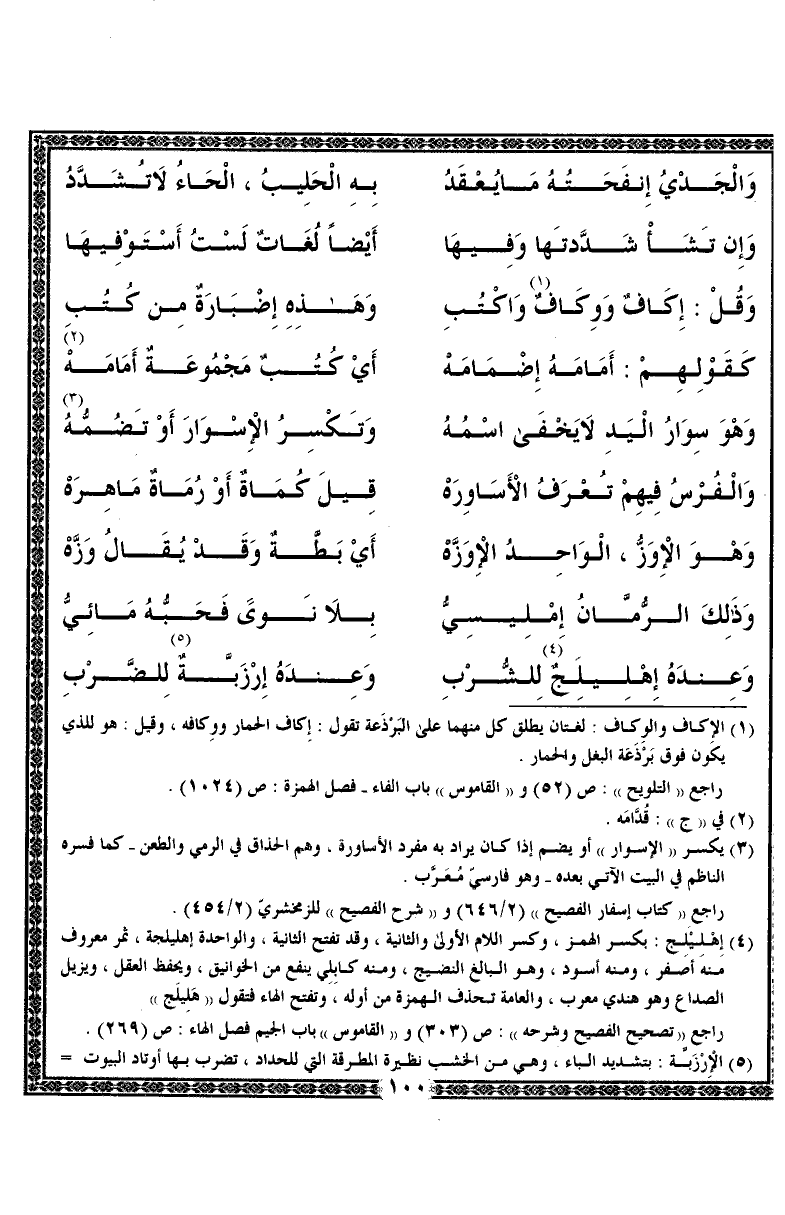 وَالْجَـدْيُ إِنفَحَتُـهُ مَـايُعْقَدُ بِهِ الْحَلِيبُ ، الْحَاءُ لَاتُشَـدَّدُ
وَإِن تَشَـأْ شَدَّدتَـها وَفِيهَا أَيْضاً لُغَاتٌ لَسْتُ أَسْتَوْفِيهَا
وَقُلْ : إِكَافٌ وَوِكَافٌ (١) وَاكْتُبِ وَهَـٰذِهِ إِضْبَارَةٌ مِن كُتُبِ
كَقَوْلِهِمْ : أَمَامَهُ إِضْمَامَهْ أَيْ كُتُبٌ مَجْمُوعَةٌ أَمَامَهْ (٢)
وَهْوَ سِوَارُ الْيَدِ لَايَخْفَىٰ اسْمُهُ وَتَكْسِرُ الْإِسْوَارَ أَوْ تَضُمُّهُ (٣)
وَالْفُرْسُ فِيهِمْ تُعْرَفُ الْأَسَاوِرَهْ قِيلَ كُمَاةٌ أَوْ رُمَاةٌ مَاهِرَهْ
وَهْوَ الْإِوَزُّ ، الْوَاحِدُ الْإِوَزَّهْ أَيْ بَطَّةٌ وَقَدْ يُقَالُ وَزَّهْ
وَذَلِكَ الرُّمَّانُ إِمْلِيسِيُّ بِلَا نَوىً فَحَبُّهُ مَائِيُّ
وَعِندَهُ إِهْلِيلَجٌ (٤) لِلشُّرْبِ وَعِندَهُ إِرْزَبَّةٌ (٥) لِلضَّرْبِ
(١) الإكاف والوكاف : لغتان يطلق كل منهما على البَرْذَعة تقول : إكاف الحمار ووكافه ، وقيل : هو للذي
يكون فوق بَرْذَعَة البغل والحمار .
راجع « التلويح » : ص (٥٢) و « القاموس » باب الفاء ـ فصل الهمزة : ص (١٠٢٤) .
(٢) في « ج » : قُدَّامَه .
(٣) يكسر « الإسوار » أو يضم إذا كان يراد به مفرد الأساورة ، وهم الحذاق في الرمي والطعن ـ كما فسره
الناظم في البيت الآتي بعده ـ وهو فارسيّ مُعَرَّب .
راجع « كتاب إسفار الفصيح » (٦٤٦/٢) و « شرح الفصيح » للزمخشريّ (٤٥٤/٢) .
(٤) إهْلِيْلِج : بكسر الهمز ، وكسر اللام الأولىٰ والثانية ، وقد تفتح الثانية ، والواحدة إهليلجة ، ثمر معروف
منه أصفر ، ومنه أسود ، وهو البالغ النضيج ، ومنه كابلي ينفع من الخوانيق ، ويحفظ العقل ، ويزيل
الصداع وهو هندي معرب ، والعامة تحذف الهمزة من أوله ، وتفتح الهاء فتقول « هَلِيلَج »
راجع « تصحيح الفصيح وشرحه » : ص (٣٠٣) و « القاموس » باب الجيم فصل الهاء : ص (٢٦٩) .
(٥) الْإِرْزَبَّة : بتشديد الباء ، وهي من الخشب نظيرة المطرقة التي للحداد ، تضرب بها أوتاد البيوت =
١٠٠